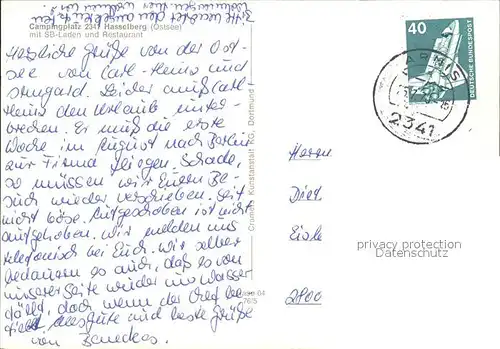 Bitte wendet den
Campingplatz 2341 Hasselberg (Ostsee)
mit SB-Laden und Restaurant
Herzliche Grüße von der Ost-
see von Carl-Heinz und
Irmgard. Leider muß Carl-
Heinz den Urlaub unter-
brechen. Er muß die erste
Woche im August nach Berlin
zur Firma fliegen. Schade,
so müssen wir Euern Be-
such wieder verschieben. Seit
nicht böse. Aufgeschoben ist nicht
aufgehoben. Wir melden uns
telefonisch bei Euch. Wir selber
bedauern es auch, daß es von
unserer Seite wieder ins Wasser
fällt, doch wenn der Chef be-
fiehlt. Alles gute und beste Grüße
von
Cramers Kunstanstalt KG, Dortmund
04
76/5
40
DEUTSCHE BUNDESPOST
2341
Herrn
Diet.
2800
privacy protection
Datenschutz